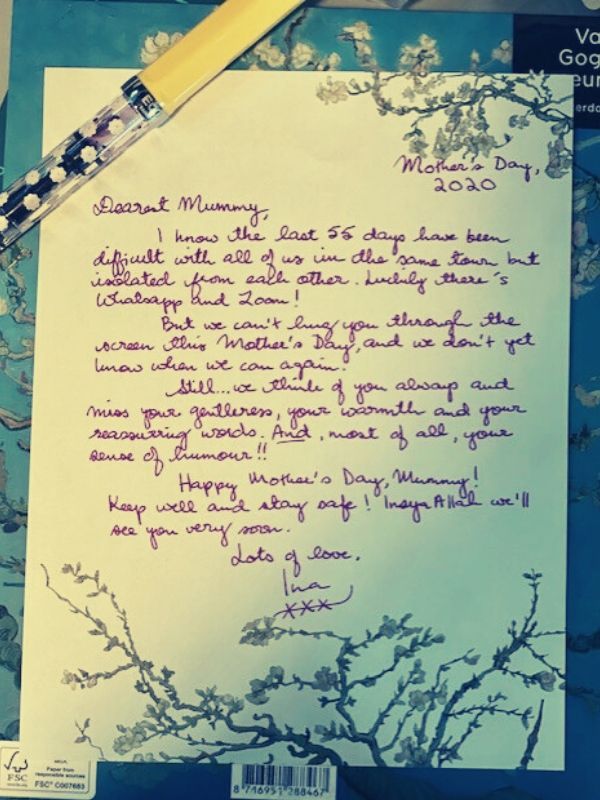 Va
Gog
eur
erda
Mother's Day,
2020
Dearest Mummy,
I know the last 55 days have been
difficult with all of us in the same town but
isolated from each other. Luckily there's
Whatsapp and Zoom!
But we can't hug you through the
screen this Mother's Day, and we don't yet
know when we can again.
Still... we think of you always and
miss your gentleness, your warmth and your
reassuring words. And, most of all, your
sense of humour!!
Happy Mother's Day, Mummy!
Keep well and stay safe! InsyaAllah we'll
see you very soon.
Lots of love,
Ina
xxx
FSC
MIX
Paper from
responsible sources
FSC® C007683
8 716951 288467